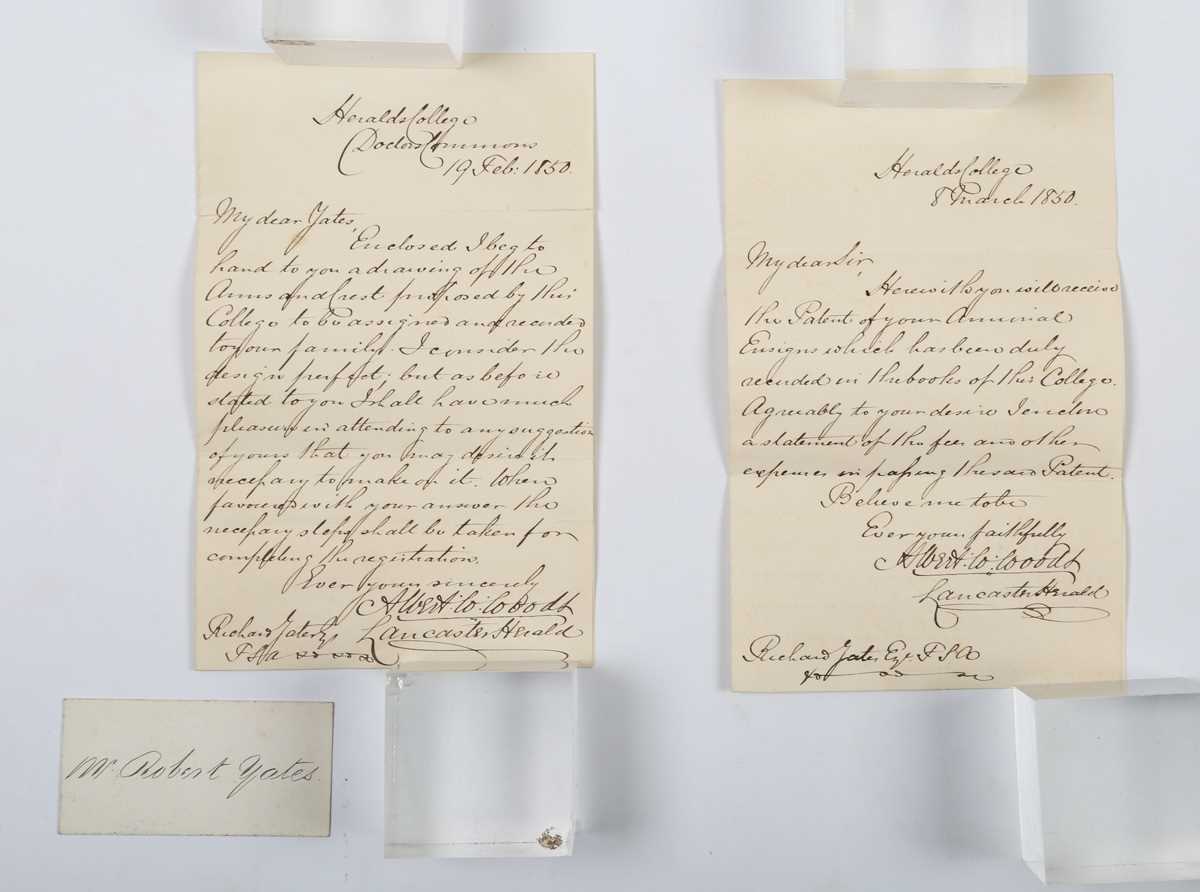 Heralds College
Doctors Commons
19 Feb: 1850.
My dear Yates,
Enclosed I beg to
hand to you a drawing of the
Arms and Crest proposed by this
College to be assigned and recorded
to your family. I consider the
design perfect; but as before
stated to you I shall have much
pleasure in attending to any suggestion
of yours that you may desire it
necessary to make on it. When
favoured with your answer the
necessary steps shall be taken for
completing the registration.
Ever yours sincerely
Albert W: Woods
Lancaster Herald
Richard Yates Esqr
FSA
Heralds College
8 March 1850.
My dear Sir,
Herewith you will receive
the Patent of your Armorial
Ensigns which has been duly
recorded in the books of this College.
Agreably to your desire I enclose
a statement of the fees and other
expenses in passing the said Patent.
Believe me to be
Ever your faithfully
Albert: W: Woods
Lancaster Herald
Richard Yates Esqr. FSA
Mr. Robert Yates.